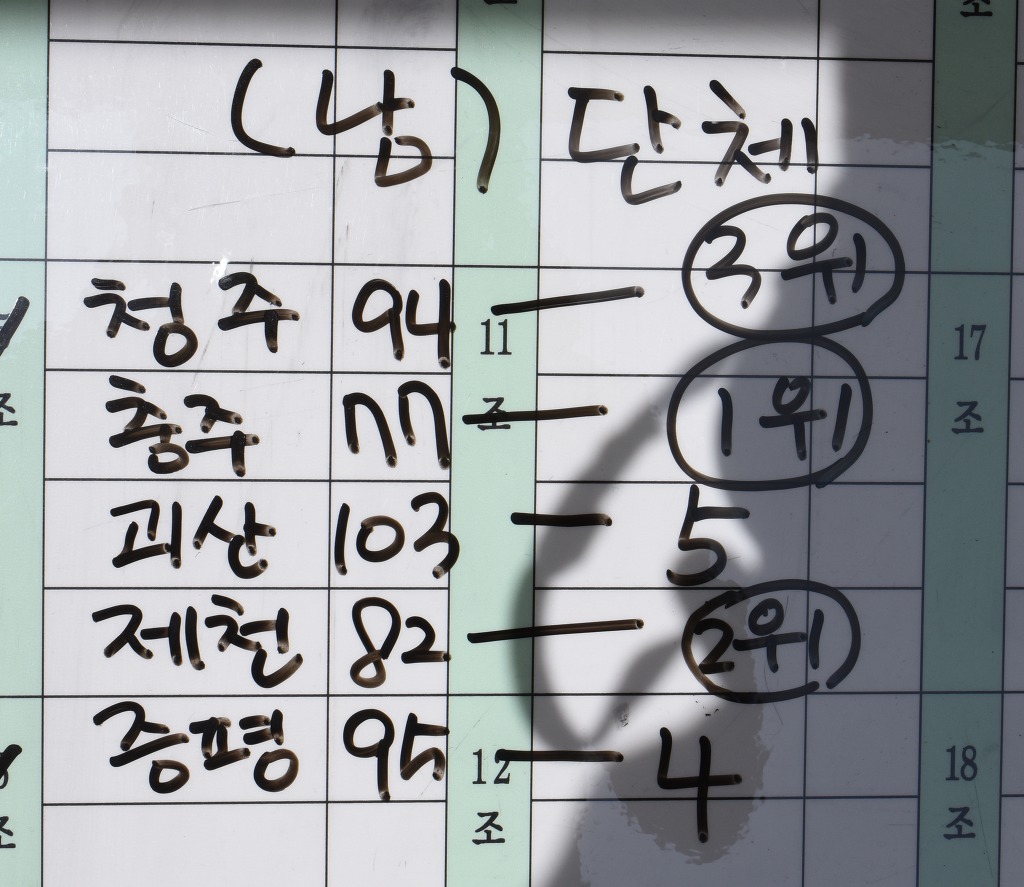 (남) 단체
청주 94 — 3위
충주 77 — 1위
괴산 103 — 5
제천 82 — 2위
증평 95 — 4
11
조
12
조
17
조
18
조
조
조
조